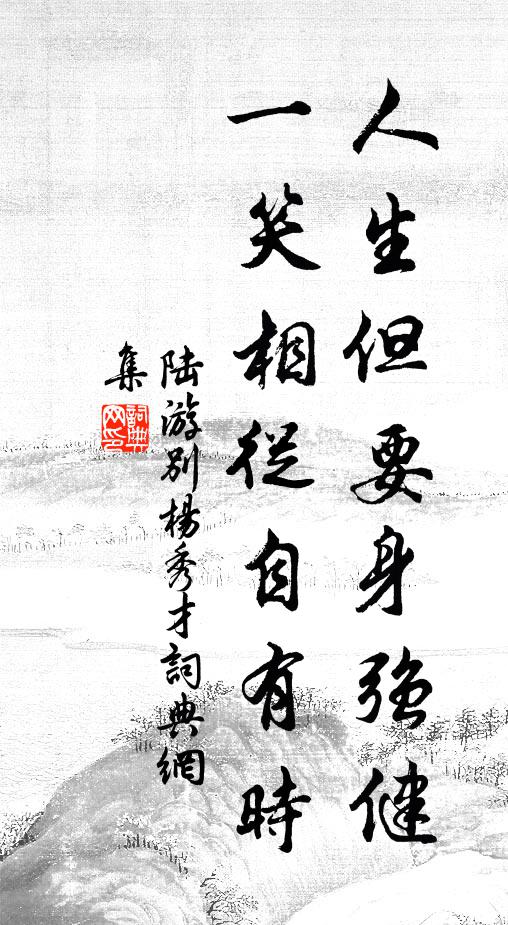 人生但要身強健
一笑相從自有時
陸游別楊秀才詞典網
集
詞典
网印